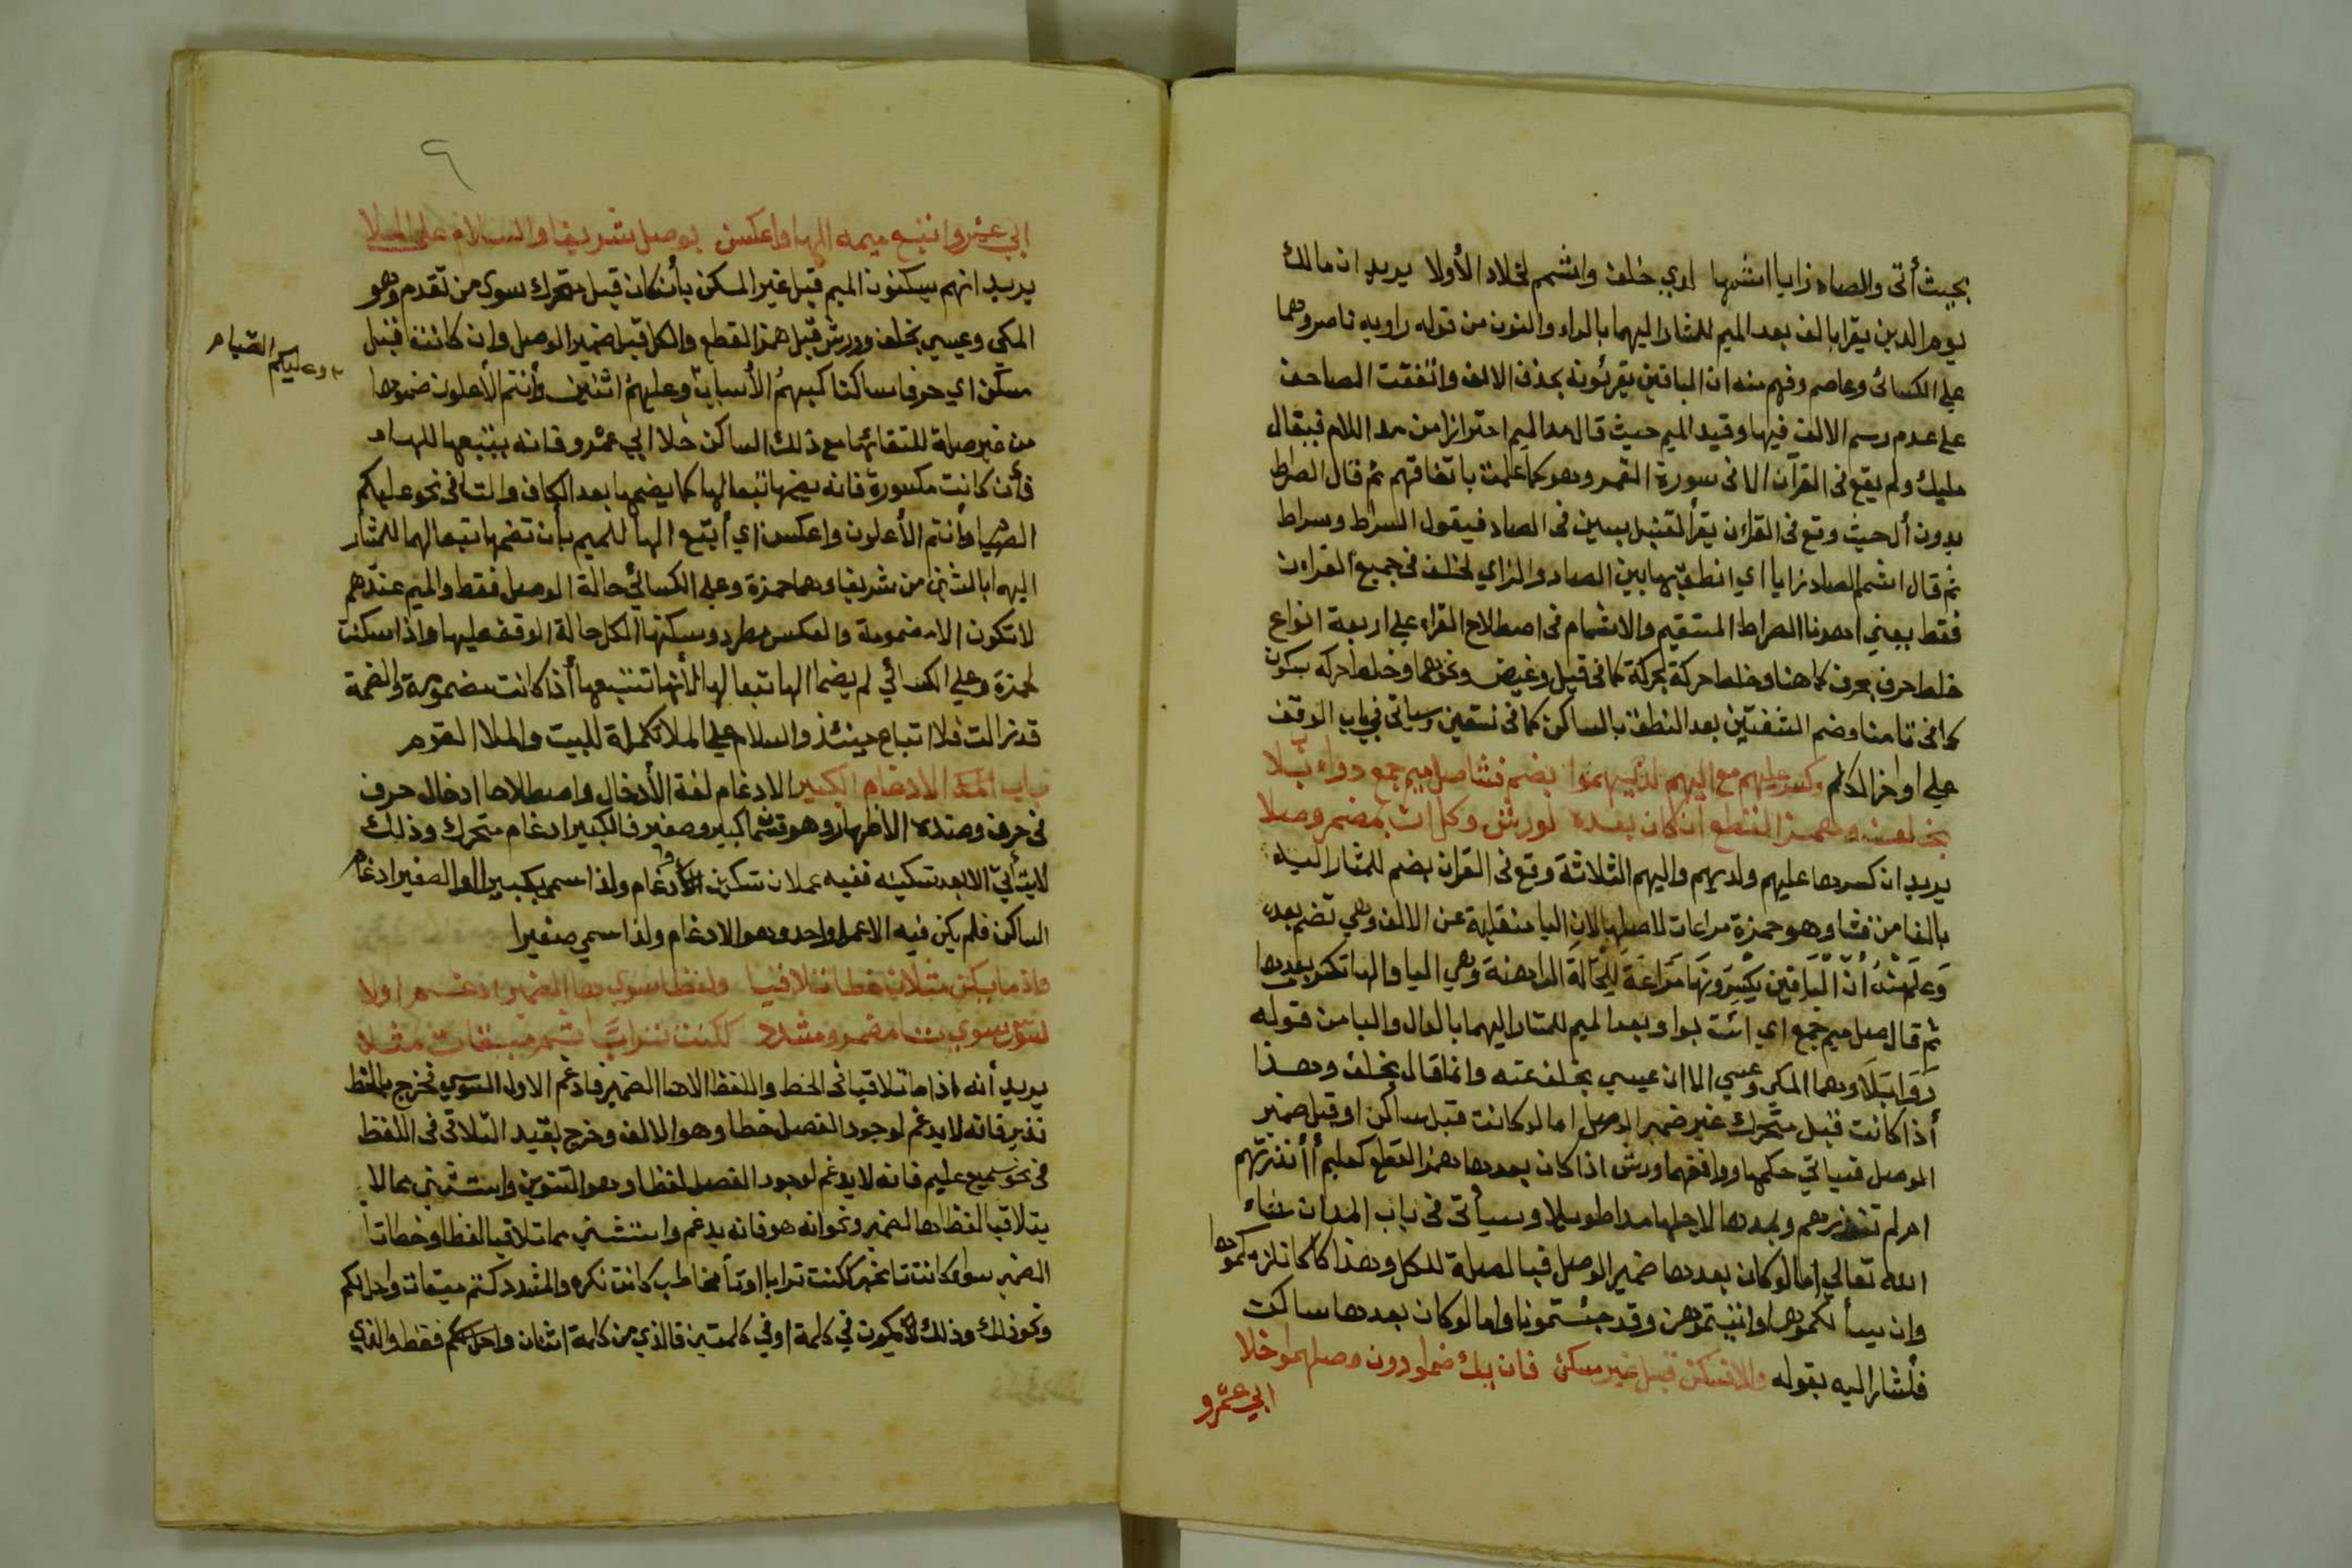 بحيث أتى والصاد زايا اشمها لدي خلف واشمم لخلاد الأولا يريد ان مالك
يوم الدين يقرا بالف بعد الميم للمشار اليهما بالراء والنون من قوله راويه ناصر وهما
علي الكسائى وعاصم وفهم منه ان الباقين يقرئونه بحذف الالف واتفقت المصاحف
على عدم رسم الالف فيها وقيد الميم حيث قال مد الميم احترازا من مد اللام فيقال
مليك ولم يقع فى القرآن الا فى سورة القمر وهو كما علمت باتفاقهم ثم قال الصراط
بدون أل حيث وقع فى القرأن يقرأ لقنبل بسين فى الصاد فيقول السراط وسراط
ثم قال اشمم الصاد زايا اي انطق بها بين الصاد والزاي لخلف فى جميع القران
فقط يعني اهدنا الصراط المستقيم والاشمام فى اصطلاح القراء علي اربعة انواع
خلط حرف بحرف كما هنا وخلط حركة بحركة كما فى قيل وغيض ونحوهما وخلط حركه بسكون
كما فى تامنا وضم الشفتين بعد النطق بالساكن كما فى نستعين وسياتى في باب الوقف
علي اواخر الكلم وكسر عليهم مع اليهم لديهموا بضم فشا صل ميم جمع دواء بلا
بخلف وهمز القطع ان كان بعده لورش وكل ات بمضمر وصلا
يريد ان كسرها عليهم ولديهم واليهم الثلاثة وقع فى القران بضم للمشار اليه
بالفا من فشا وهو حمزة مراعات لاصلها لان اليا منقلبة عن الالف وهي تضم بعده
وعلمت ان الباقين يكسرونها مراعة للحالة الراهنة وهي اليا والها تكسر بعدها
ثم قال صل ميم جمع اي ائت بواو بعد الميم للمشار اليهما بالدال والبا من قوله
دواء بلا وهما المكي وعيسي الا ان عيسي بخلف عنه وانما قال بخلف وهذا
أذا كانت قبل متحرك غير ضمير الوصل اما لو كانت قبل ساكن او قبل ضمير
الوصل فسياتي حكمها ووافقهما ورش اذا كان بعدها همز القطع كعليهم أأنذرتهم
ام لم تنذرهم ويمدها لاجلها مدا طويلا وسيأتى فى باب المد ان شاء
الله تعالي اما لو كان بعدها ضمير الوصل فبالصلة للكل وهذا كانلزمكموها
وان يسألكموها واتيتموهن وقد جئتمونا واما لو كان بعدها ساكن
فأشار اليه بقوله والا فسكن قبل غير مسكن فان يك ضموا دون وصلهموا خلا
ابي عمرو
٩
ابي عمرو اتبع ميمه الها واعكسن بوصل شريفا والسلام على الملا
يريد انهم يسكنون الميم قبل غير المسكن بأن كان قبل متحرك سوى من تقدم وهو
المكي وعيسي بخلف وورش قبل همز القطع والكل قبل ضمير الوصل وان كانت قبل
مسكن اي حرفا ساكنا كبهمُ الأسباب وعليهمُ اثنين وأنتم الأعلون ضموها
وعليكم الصيام
من غير صلة للتقائها مع ذلك الساكن خلا ابي عمرو فانه يتبعها للهاء
فأن كانت مكسورة فانه يضمها تبعا لها كما يضمها بعد الكاف والتا فى نحو عليكم
الصيام وأنتم الأعلون واعكس اي أتبع الها للميم بأن تضمها تبعا لها للمشار
اليهما بالشين من شريفا وهما حمزة وعلي الكسائي حالة الوصل فقط والميم عندهم
لا تكون الا مضمومة والعكس مطرد وسكنها الكل حالة الوقف عليها واذا سكنت
لحمزة وعلي الكسائي لم يضما الها تبعا لها لأنها تتبعها أذا كانت مضمومة والضمة
قد زالت فلا اتباع حينئذ والسلام علي الملا تكملة للبيت والملا القوم
باب الادغام الكبير الادغام لغة الأدخال واصطلاحا ادخال حرف
فى حرف وضده الاظهار وهو قسمان كبير وصغير فالكبير ادغام متحرك وذلك
لا يتأتى الا بعد تسكينه ففيه عملان تسكين وادغام ولذا سمي بكبيرا والصغير ادغام
الساكن فلم يكن فيه الا عمل واحد وهو الادغام ولذا سمي صغيرا
واذ ما يكن مثلان خطا تلاقيا ولفظا سوى ها الضمير ادغم اولا
لسوس سوي تا مضمر ومشدد ككنت ترابا ثم ميقات مثلا
يريد أنه اذا ما تلاقيا فى الخط واللفظ الا ها الضمير فادغم الاول للسوسي فخرج بالخط
نذير فانه لا يدغم لوجود الفصل خطا وهو الالف وخرج بقيد التلاقى فى اللفظ
فى نحو سميع عليم فانه لا يدغم لوجود الفصل لفظا وهو التنوين واستثنى مما لا
يتلاقيا لفظا ها الضمير ونحو انه هو فانه يدغم واستثني مما تلاقيا لفظا وخطا تا
الضمير سواء كانت تا مخبر ككنت ترابا او تأ مخاطب كانت تكره والمشدد كتم ميقات واحل لكم
ونحو ذلك وذلك يكون في كلمة اوفي كلمتين فالذي من كلمة اثنان واحل لكم فقط والذي